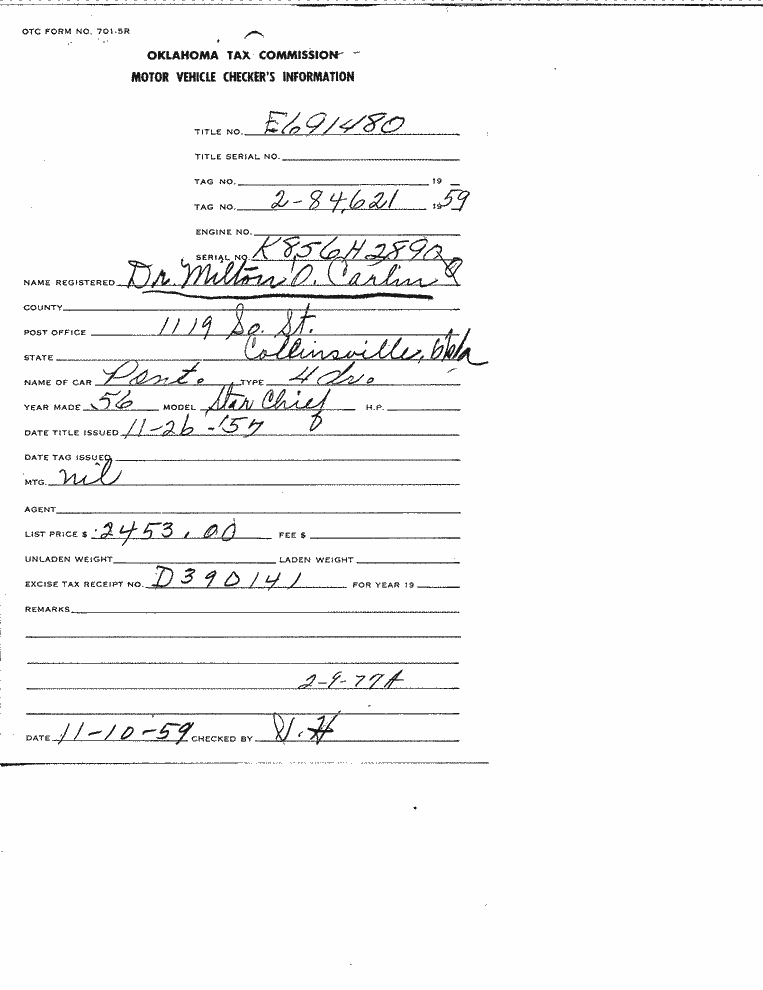 OTC FORM NO. 701-5R
OKLAHOMA TAX COMMISSION
MOTOR VEHICLE CHECKER'S INFORMATION
TITLE NO. E691480
TITLE SERIAL NO.
TAG NO. 19
TAG NO. 2-84,621 1959
ENGINE NO.
SERIAL NO. K856H2892
NAME REGISTERED Dr. Milton O. Carlin
COUNTY
POST OFFICE 1119 So. St.
STATE Collinsville, Okla
NAME OF CAR Pont. TYPE 4 dr.
YEAR MADE 56 MODEL Star Chief H.P.
DATE TITLE ISSUED 11-26-57
DATE TAG ISSUED
MTG. nil
AGENT
LIST PRICE $ 2453.00 FEE $
UNLADEN WEIGHT LADEN WEIGHT
EXCISE TAX RECEIPT NO. D390141 FOR YEAR 19
REMARKS
2-9-77A
DATE 11-10-59 CHECKED BY V.H